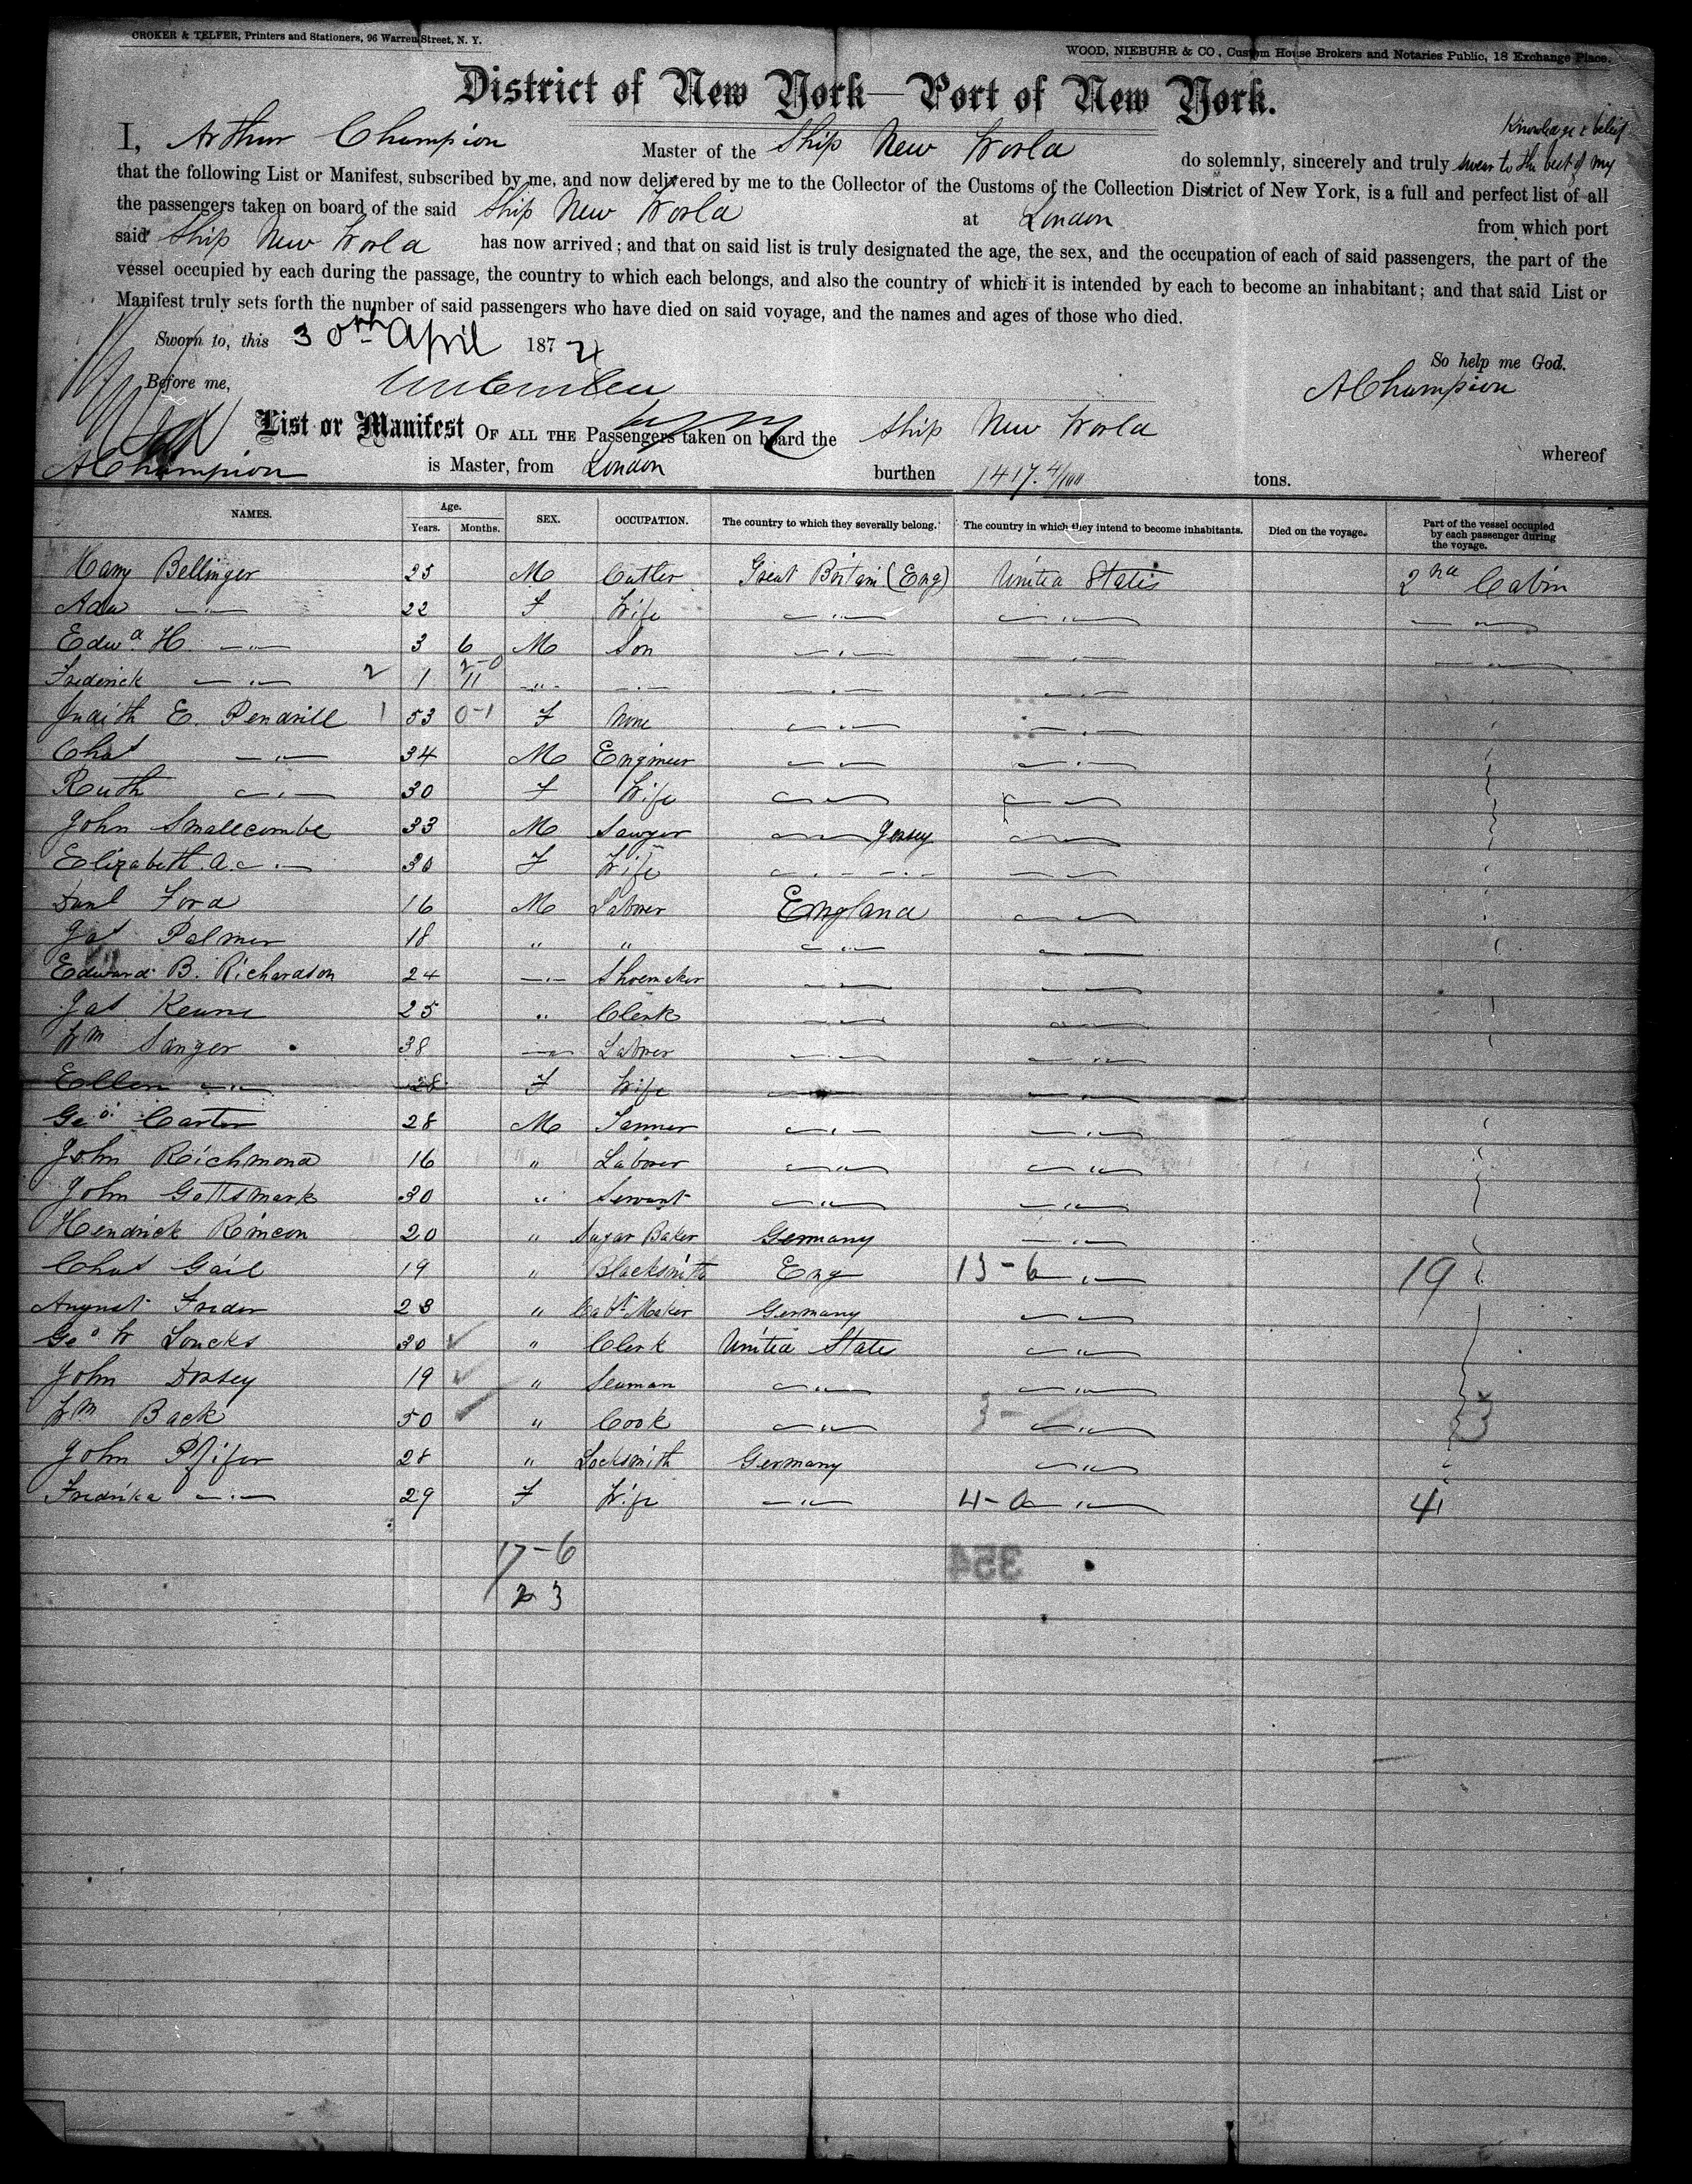 CROKER & TELFER, Printers and Stationers, 96 Warren Street, N. Y.
WOOD, NIEBUHR & CO, Custom House Brokers and Notaries Public, 18 Exchange Place.
District of New York—Port of New York.
Knowledge & belief
I, Arthur Champion Master of the Ship New World do solemnly, sincerely and truly swear to the best of my
that the following List or Manifest, subscribed by me, and now delivered by me to the Collector of the Customs of the Collection District of New York, is a full and perfect list of all
the passengers taken on board of the said Ship New World at London from which port
said Ship New World has now arrived; and that on said list is truly designated the age, the sex, and the occupation of each of said passengers, the part of the
vessel occupied by each during the passage, the country to which each belongs, and also the country of which it is intended by each to become an inhabitant; and that said List or
Manifest truly sets forth the number of said passengers who have died on said voyage, and the names and ages of those who died.
Sworn to, this 30th April 187
So help me God.
Before me, AChampion
List or Manifest OF ALL THE Passengers taken on board the Ship New World whereof
AChampion is Master, from London burthen 1417. 4/100 tons.
NAMES. Age. Years. Months. SEX. OCCUPATION. The country to which they severally belong. The country in which they intend to become inhabitants. Died on the voyage. Part of the vessel occupied by each passenger during the voyage.
Harry Bellinger 25 M Cutler Great Britain (Eng) United States 2nd Cabin
Ada —"— 22 F Wife —"— —"— —"—
Edwd. H. —"— 3 6 M Son —"— —"— —"—
Frederick —"— 2 1 11 2-0 —"— —"— —"— —"—
Judith E. Pendrill 1 53 0-1 F None —"— —"—
Chas —"— 34 M Engineer —"— —"—
Ruth —"— 30 F Wife —"— —"—
John Smallcombe 33 M Sawyer —"— Jersey —"—
Elizabeth A. —"— 30 F Wife —"— —"—
Danl Ford 16 M Laborer England —"—
Jas Palmer 18 " " —"— —"—
Edward B. Richardson 24 —"— Shoemaker —"— —"—
Jas Keane 25 " Clerk —"— —"—
Wm Sanger 38 —"— Laborer —"— —"—
Ellen —"— 28 F Wife —"— —"—
Geo. Carter 28 M Tanner —"— —"—
John Richmond 16 " Laborer —"— —"—
John Gottsmark 30 " Servant —"— —"—
Hendrick Rincon 20 " Sugar Baker Germany —"—
Chas Gail 19 " Blacksmith Eng 13-6 —"— 19
August Frider 23 " Cabt. Maker Germany —"—
Geo W Loucks 30 " Clerk United State —"—
John Dorsey 19 " Seaman —"— —"—
Wm Back 50 " Cook —"— 3- —"— 3
John Pfifer 28 " Locksmith Germany —"—
Fredrika —"— 29 F Wife —"— 4-0 —"— 4
17-6
23
354